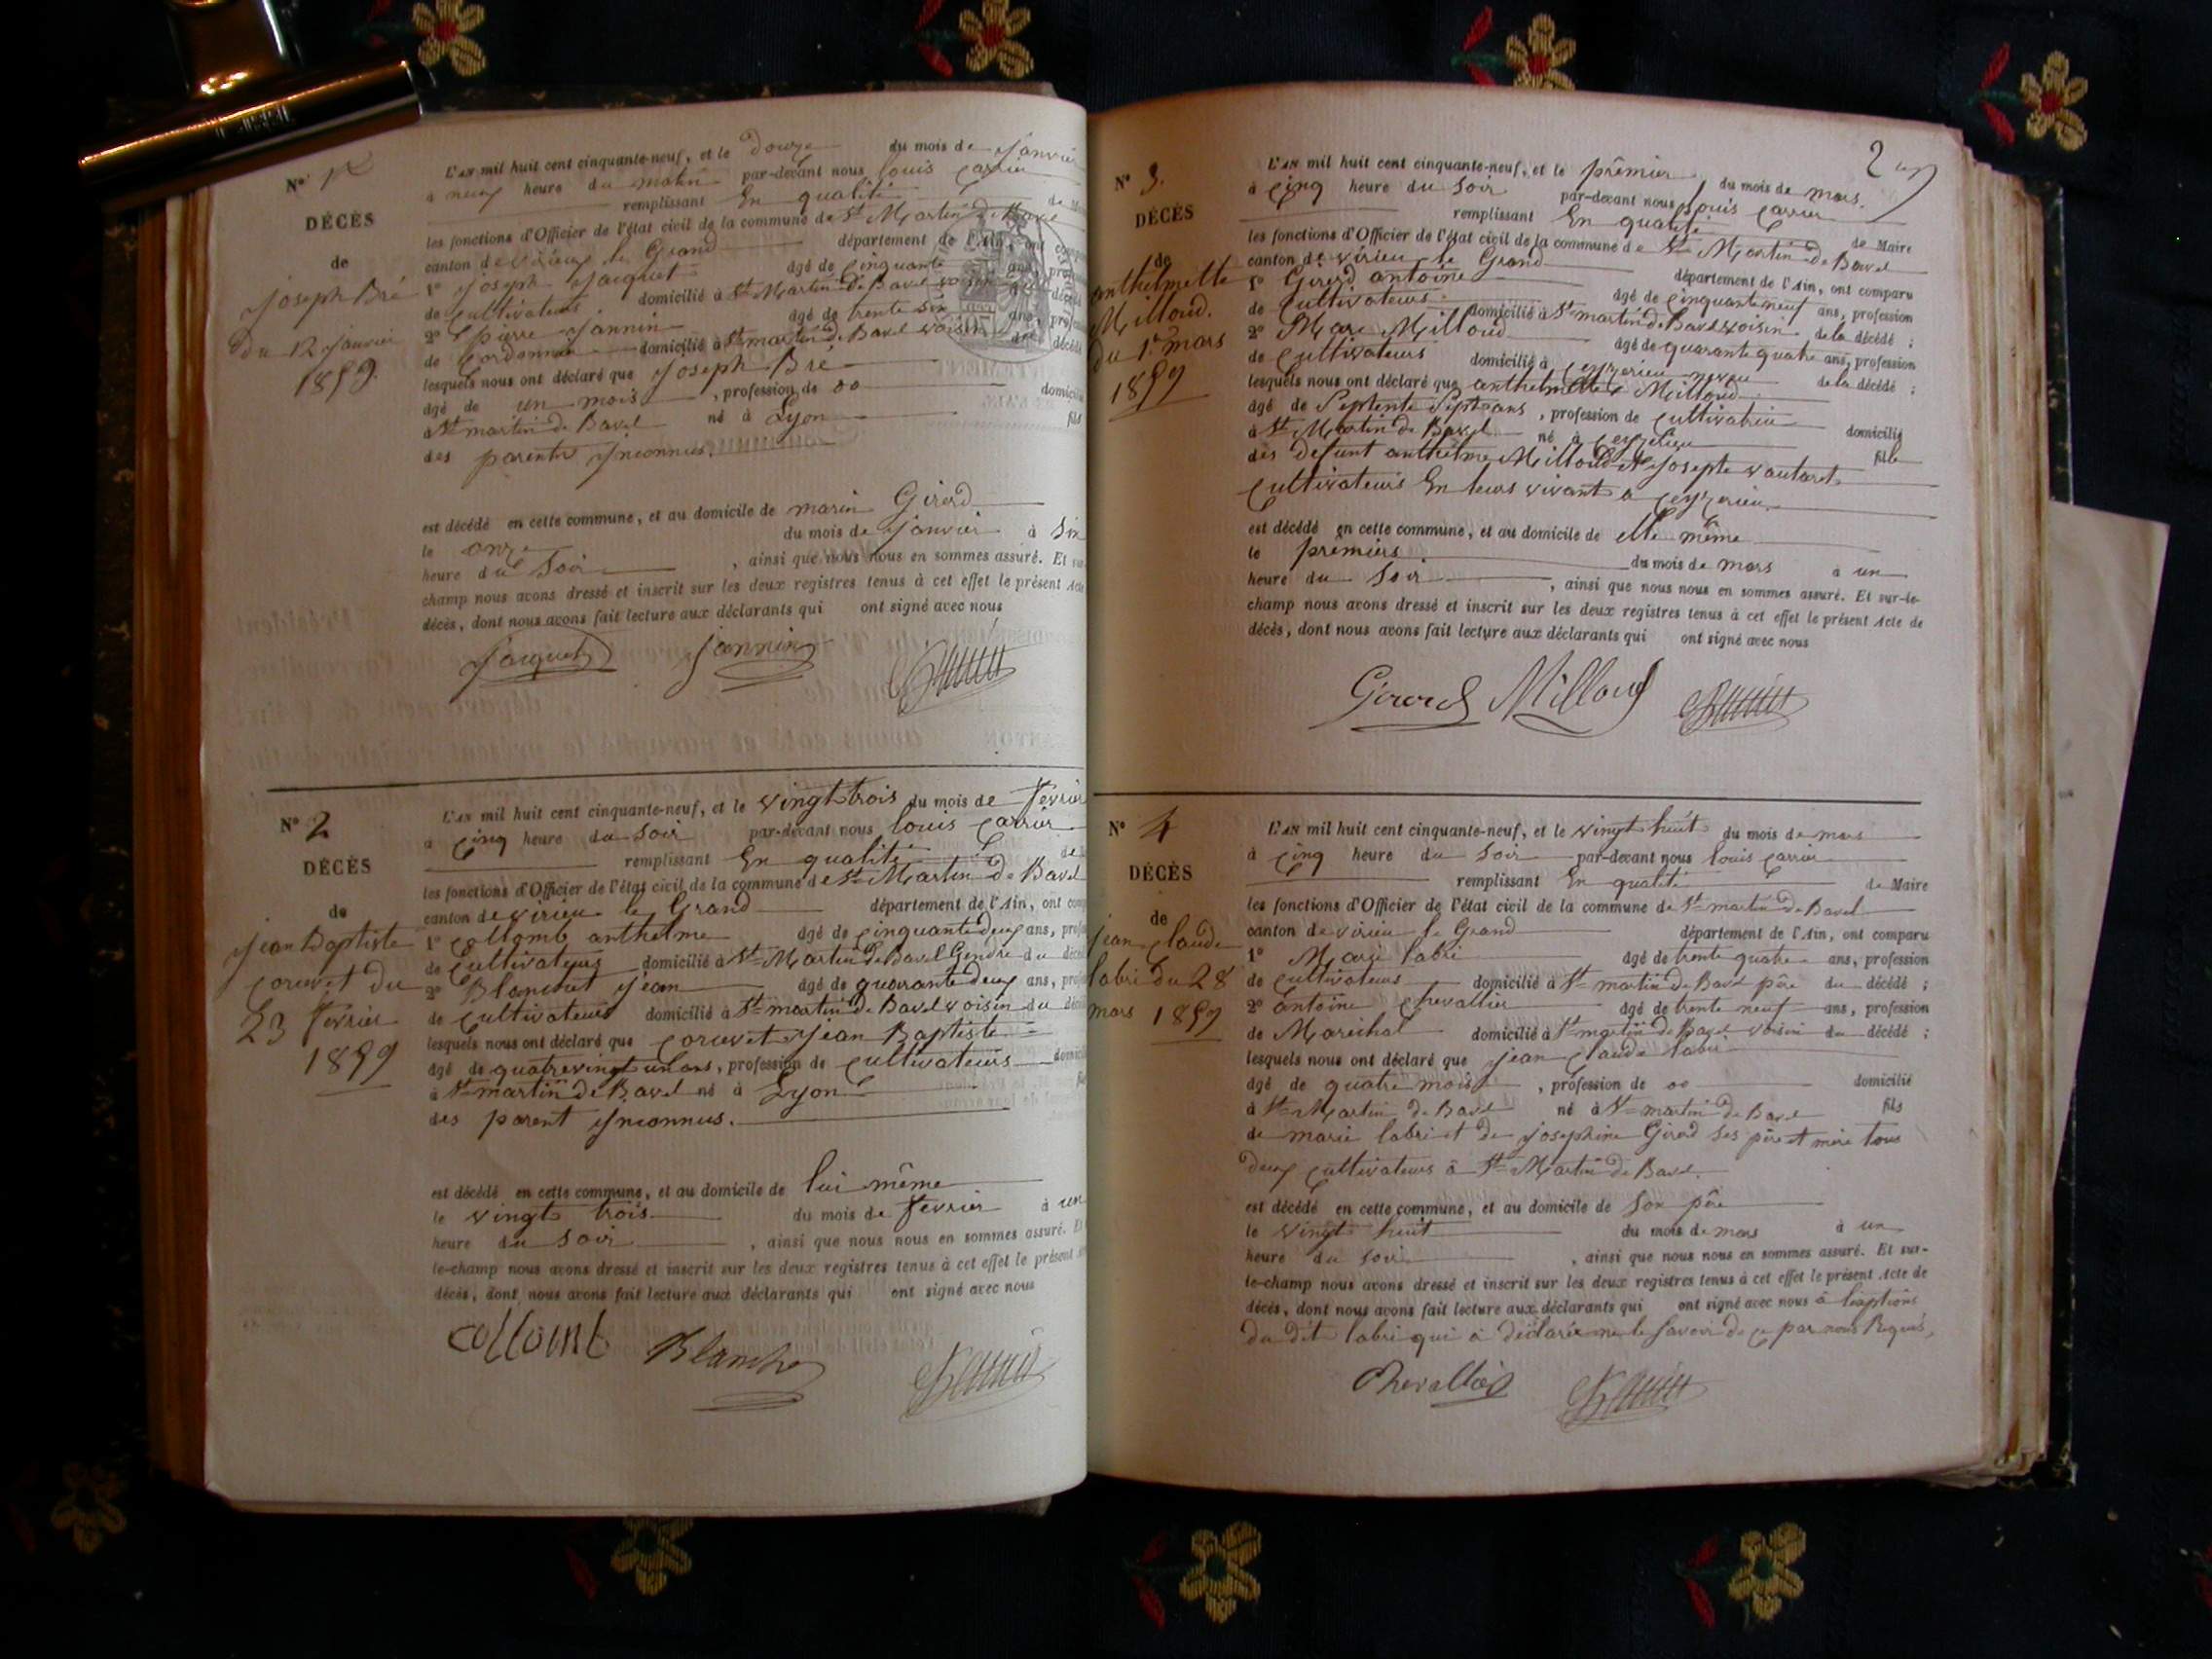 N° 1
DÉCÈS
de
joseph Bré
du 12 janvier
1859.
L'AN mil huit cent cinquante-neuf, et le douze du mois de janvier
à neuf heure du matin par-devant nous louis carrier
remplissant En qualité de
les fonctions d'Officier de l'état civil de la commune de St Martin de Bavel
canton de virieu le Grand département de l'Ain, ont
1° joseph jacquet âgé de cinquante ans,
de cultivateurs domicilié à St Martin de Bavel voisin
2° pierre jannin âgé de trente six ans,
de Cordonnier domicilié à St martin de Bavel voisin
lesquels nous ont déclaré que joseph Bré
âgé de un mois, profession de oo
à St martin de Bavel né à Lyon fils
des parents jnconnus.
est décédé en cette commune, et au domicile de marin Girerd
le onze du mois de janvier à Six
heure du Soir, ainsi que nous nous en sommes assuré. Et
champ nous avons dressé et inscrit sur les deux registres tenus à cet effet le présent Acte
décès, dont nous avons fait lecture aux déclarants qui ont signé avec nous
Jacquet Jannin
N° 2
DÉCÈS
de
jean Baptiste
coruvet du
23 fevrier
1859
L'AN mil huit cent cinquante-neuf, et le vingt trois du mois de fevrier
à cinq heure du Soir par-devant nous louis carrier
remplissant En qualité de
les fonctions d'Officier de l'état civil de la commune de St Martin de Bavel
canton de virieu le Grand département de l'Ain, ont
1° collomb anthelme âgé de cinquante deux ans,
de Cultivateurs domicilié à St Martin de Bavel Gendre du
2° Blanchet jean âgé de quarante deux ans,
de Cultivateurs domicilié à St martin de Bavel voisin du
lesquels nous ont déclaré que coruvet jean Baptiste
âgé de quatrevingt un ans, profession de cultivateurs
à St martin de Bavel né à Lyon
des parent jnconnus.
est décédé en cette commune, et au domicile de lui même
le vingt trois du mois de fevrier à un
heure du Soir, ainsi que nous nous en sommes assuré. Et
le-champ nous avons dressé et inscrit sur les deux registres tenus à cet effet le présent
décès, dont nous avons fait lecture aux déclarants qui ont signé avec nous
collomb Blanche
2
N° 3.
DÉCÈS
de
anthelmette
Milloud.
du 1er mars
1859
L'AN mil huit cent cinquante-neuf, et le prêmier du mois de mars.
à cinq heure du Soir par-devant nous louis carrier
remplissant En qualité de Maire
les fonctions d'Officier de l'état civil de la commune de St Martin de Bavel
canton de virieu le Grand département de l'Ain, ont comparu
1° Girerd antoine âgé de cinquante neuf ans, profession
de Cultivateurs domicilié à St martin de Bavel voisin de la décédé ;
2° Marc Milloud âgé de quarante quatre ans, profession
de Cultivateurs domicilié à ceyzerieu neveu de la décédé ;
lesquels nous ont déclaré que anthelmette Milloud
âgé de Septente Sept ans, profession de cultivatrice
à St Martin de Bavel né à ceyzerieu domicilié
des defunt anthelme Milloud et josepte vautaret fille
cultivateurs En leurs vivant a ceyzerieu.
est décédé en cette commune, et au domicile de elle même
le premiers du mois de mars à un
heure du Soir, ainsi que nous nous en sommes assuré. Et sur-le-
champ nous avons dressé et inscrit sur les deux registres tenus à cet effet le présent Acte de
décès, dont nous avons fait lecture aux déclarants qui ont signé avec nous
Girerd Milloud
N° 4
DÉCÈS
de
jean claude
labri du 28
mars 1859
L'AN mil huit cent cinquante-neuf, et le vingt huit du mois de mars
à cinq heure du Soir par-devant nous louis carrier
remplissant En qualité de Maire
les fonctions d'Officier de l'état civil de la commune de St martin de Bavel
canton de virieu le Grand département de l'Ain, ont comparu
1° Marie labri âgé de trente quatre ans, profession
de cultivateurs domicilié à St martin de Bavel père du décédé ;
2° antoine chevallier âgé de trente neuf ans, profession
de Maréchal domicilié à St martin de Bavel voisin du décédé ;
lesquels nous ont déclaré que jean claude labri
âgé de quatre mois, profession de oo domicilié
à St Martin de Bavel né à St martin de Bavel fils
de marie labri et de josephine Girerd Ses père et mère tous
deux cultivateurs à St Martin de Bavel.
est décédé en cette commune, et au domicile de Son père
le vingt huit du mois de mars à un
heure du soir, ainsi que nous nous en sommes assuré. Et sur-
le-champ nous avons dressé et inscrit sur les deux registres tenus à cet effet le présent Acte de
décès, dont nous avons fait lecture aux déclarants qui ont signé avec nous à
du dit labri qui à déclarée ne le savoir de ce par nous Requis,
Chevallier